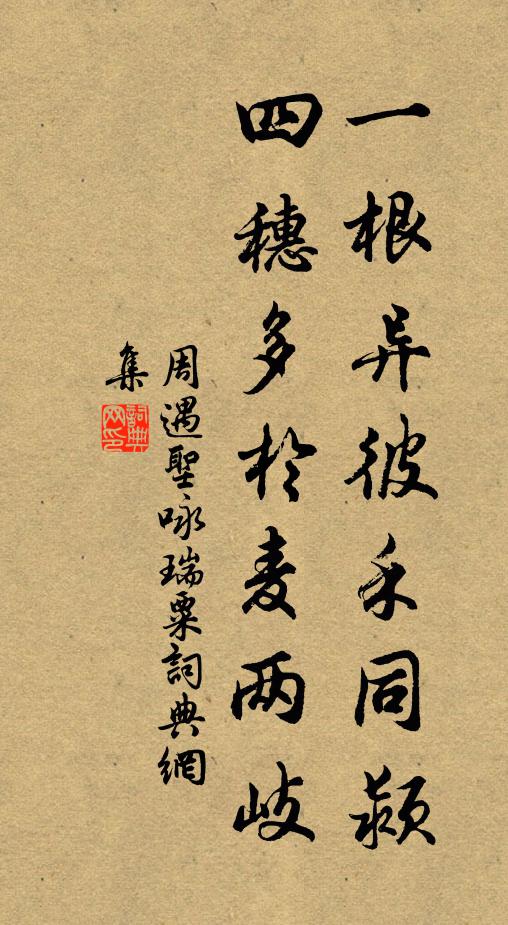 一根异彼禾同颖
四穗多於麦两岐
周遇聖咏瑞粟詞典網
集
詞典网印